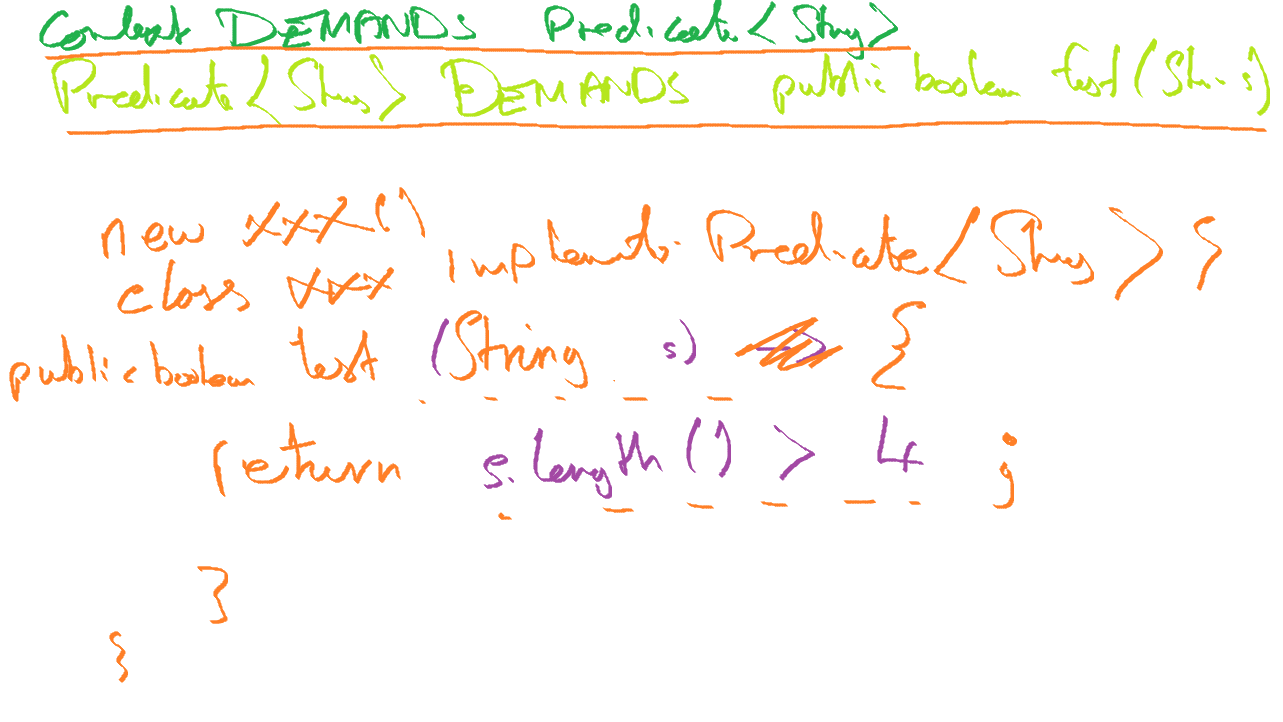 Context DEMANDS Predicate<String>
Predicate<String> DEMANDS public boolean test(String s)
new xxx()
class xxx implements Predicate<String> {
public boolean test (String s) {
return s.length() > 4 ;
}
}